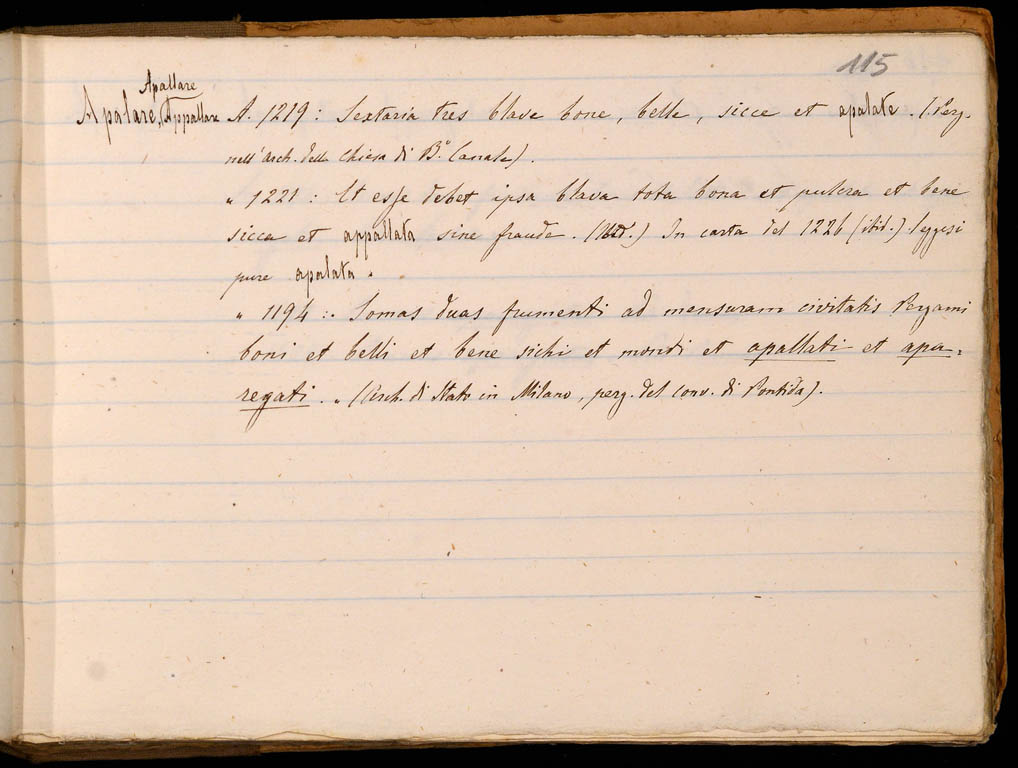 115
Apallare
Apalare, Appallare A. 1219 : Sextaria tres blave bone, belle, sicce et apalate. (Perg.
nell'Arch. della Chiesa di B.º Canale).
" 1221 : Et esse debet ipsa blava tota bona et pulcra et bene
sicca et appallata sine fraude. (Ibid.) In carta del 1226 (ibid.) leggesi
pure apalata.
" 1194 : Somas duas frumenti ad mensuram civitatis Pergami
boni et belli et bene sichi et mondi et apallati et apa-
regati. " (Arch. di Stato in Milano, perg. del conv. di Pontida).